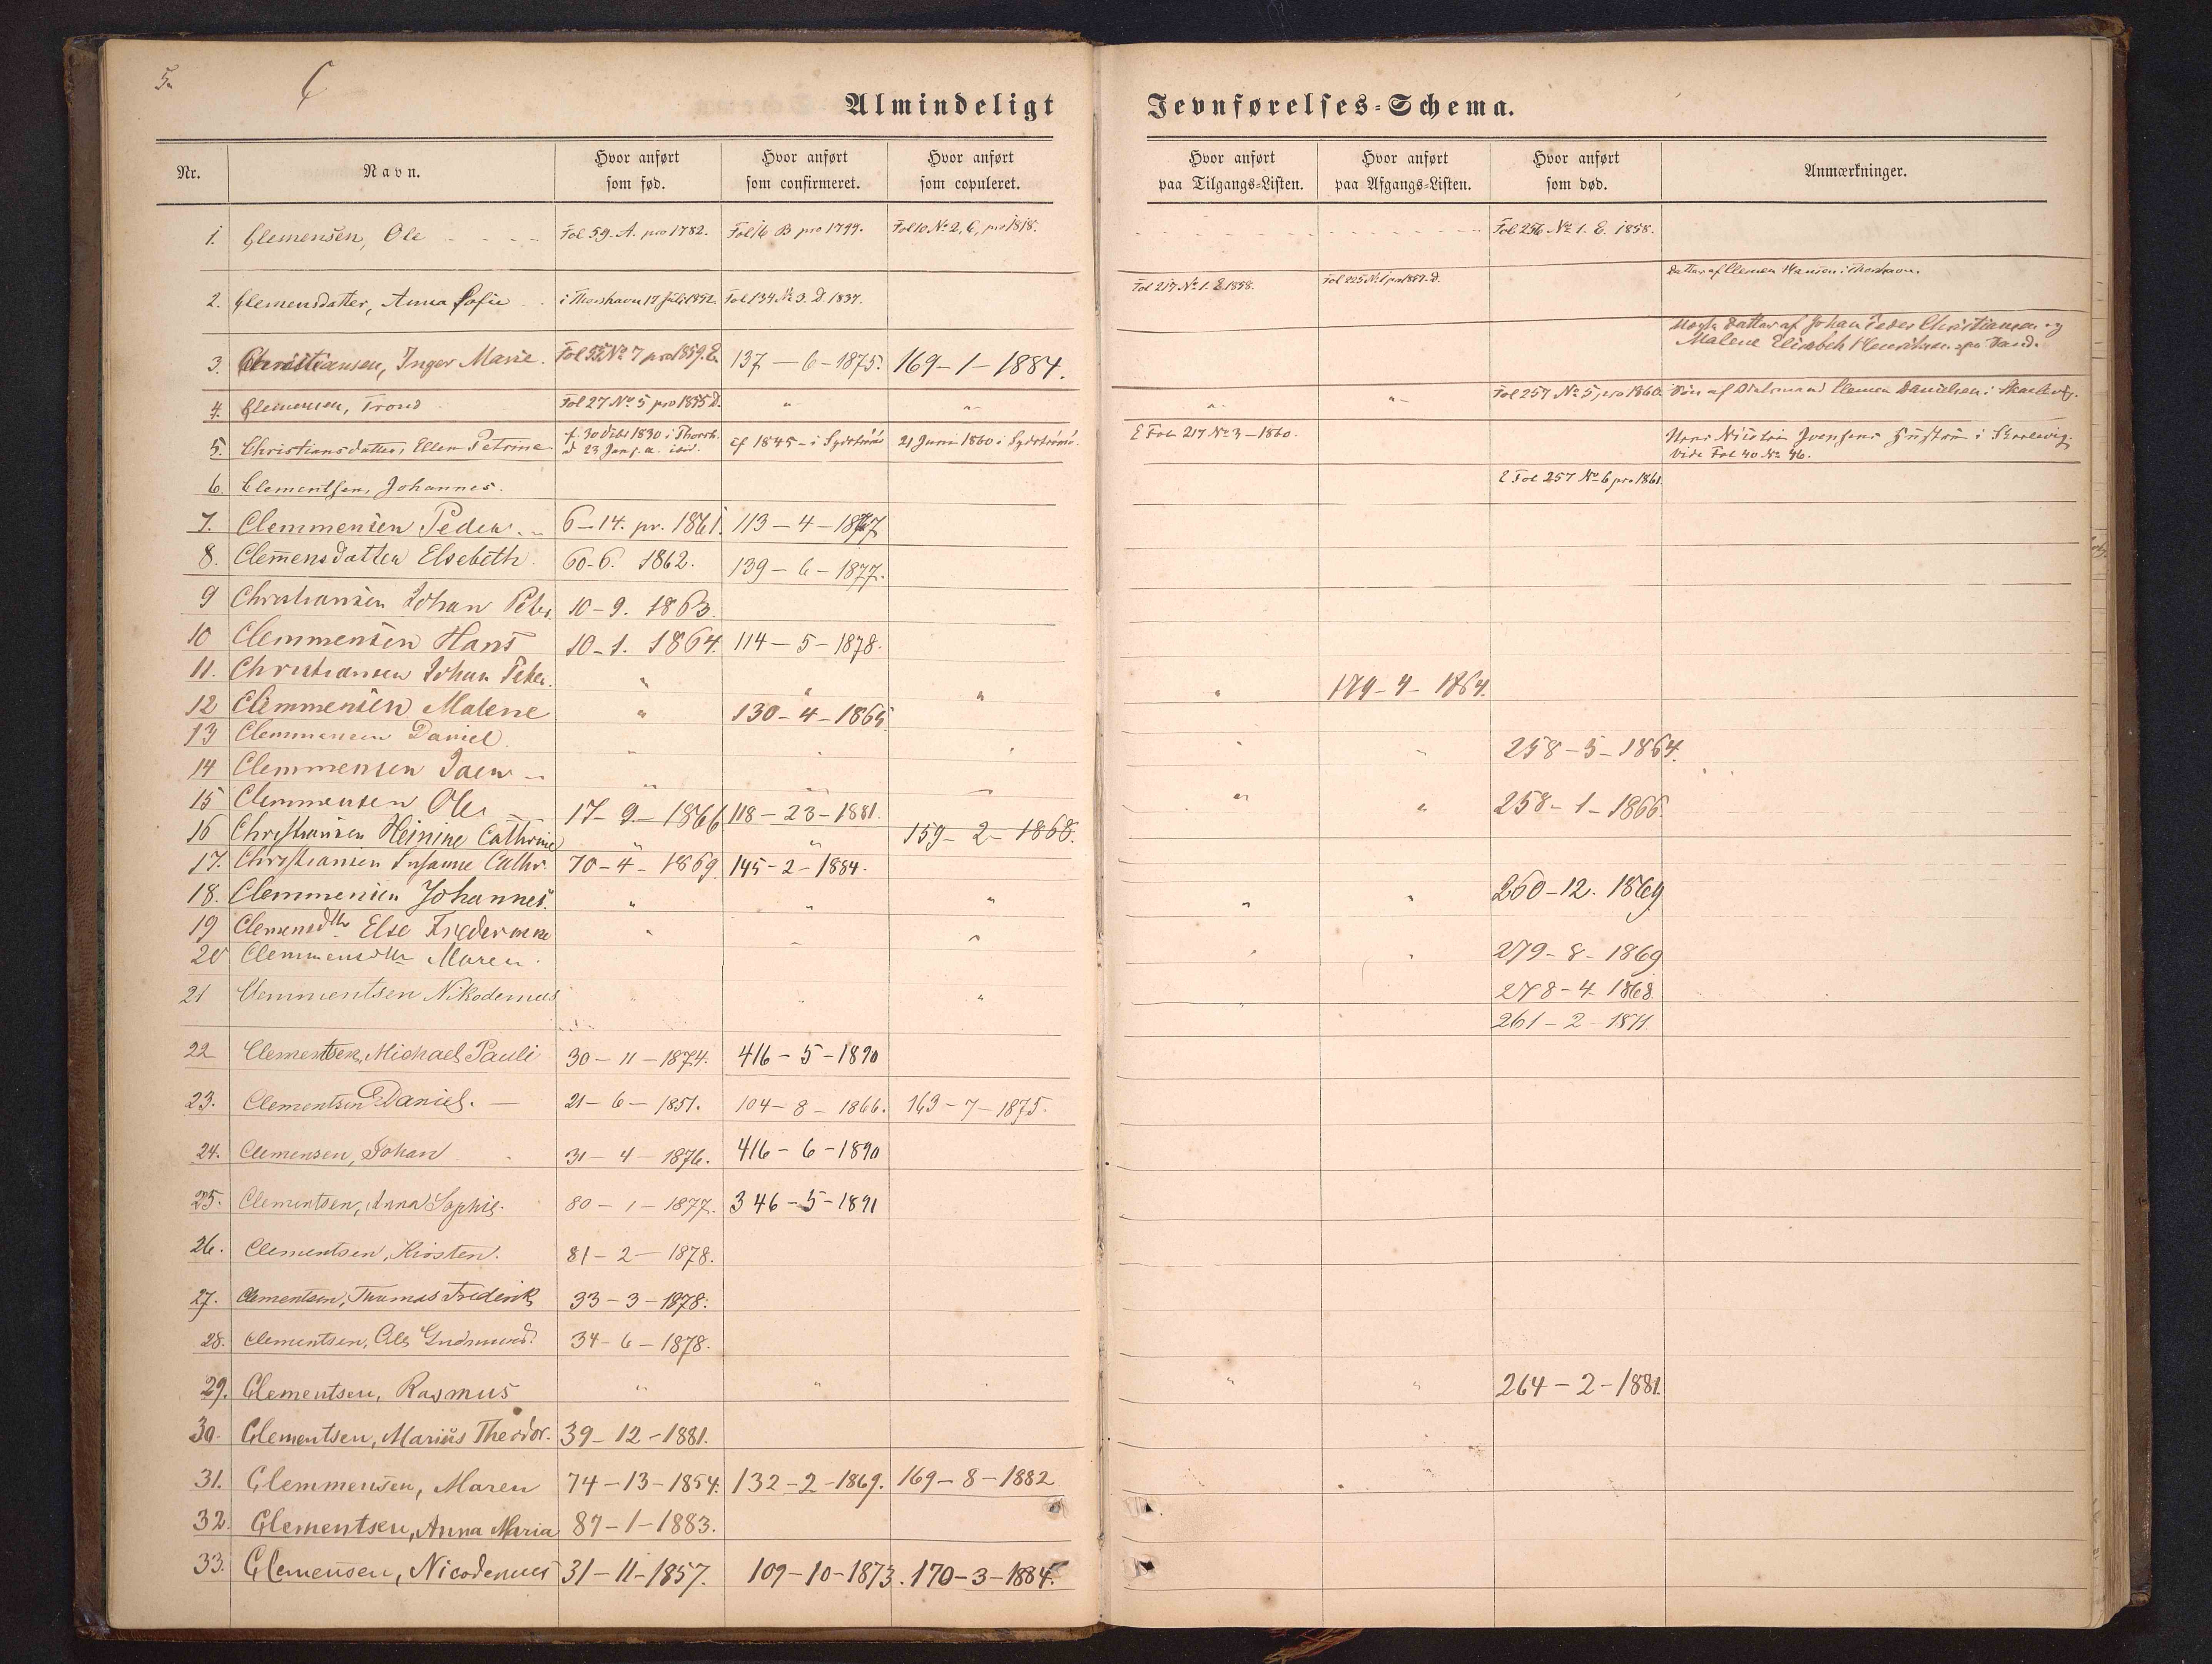 5.
C
Almindeligt Jevnførelses-Schema.
Nr. Navn. Hvor anført som fød. Hvor anført som confirmeret. Hvor anført som copuleret. Hvor anført paa Tilgangs-Listen. Hvor anført paa Afgangs-Listen. Hvor anført som død. Anmærkninger.
1. Clemensen, Ole Fol 59. A. pro 1782. Fol 16 B pro 1799. Fol 10 No 2, C, pro 1818. Fol 256 No 1. E. 1858.
2. Clemensdatter, Anna Sofie i Thorshavn 17 Juli 1852. Fol 134 No 3. D. 1837. Fol 217 No 1. E 1858. Fol 225 No 1 pro 1859. D. Datter af Clemen Hansen i Thorshavn.
3. Christiansen, Inger Marie. No 7 pro 1859. E. 137 - 6 - 1875. 169 - 1 - 1884. Datter af Johan Peder Christiansen og
Malene Elisabeth
4. Clemensen, Trond Fol 27 No 5 pro 1855 D. " " " " Fol 257 No 5, pro 1860. Søn af Clemen Danielsen i
5. Christiansdatter, Ellen Petrine f. 30 1830 i Thorsh.
d 23 Jan. f. a. ibid. cf 1845 - i Syd 21 Juni 1860 i Syd E Fol. 217 No 3 - 1860. i
Vide Fol 40 No 46.
6. Clementsen, Johannes. E Fol 257 No 6 pro 1861
7. Clemmensen Peder 6 - 14. pr. 1861. 113 - 4 - 1877
8. Clemensdatter Elsebeth 60 - 6. 1862. 139 - 6 - 1877.
9 Christiansen Johan Peter 10 - 9. 1863.
10 Clemmensen Hans 10 - 1. 1864. 114 - 5 - 1878.
11. Christiansen Johan Peter. " " " " 179 - 4 - 1864.
12 Clemmensen Malene " 130 - 4 - 1865
13 Clemmensen Daniel 258 - 5 - 1864.
14 Clemmensen " " 258 - 1 - 1866.
15 Clemmensen Ole 17 - 9 - 1866 118 - 23 - 1881.
16 Christiansen Heinine Cathrine " " 159 - 2 - 1868.
17. Christiansen Susanne Cathr. 70 - 4 - 1869. 145 - 2 - 1884.
18. Clemmensen Johannes. " " " " " 260 - 12. 1869
19 Clemensdtr Else " 279 - 8 - 1869
20 Clemmensdtr Maren. 278 - 4 - 1868.
21 Clemmentsen Nikodemus " " " 261 - 2 - 1871.
22 Clementsen, Michael Pauli 30 - 11 - 1874. 416 - 5 - 1890
23. Clementsen Daniel. 21 - 6 - 1851. 104 - 8 - 1866. 163 - 7 - 1875.
24. Clemensen, Johan 31 - 4 - 1876. 416 - 6 - 1890
25. Clementsen, Anna Sophie. 80 - 1 - 1877. 346 - 5 - 1891
26. Clementsen, Kirsten. 81 - 2 - 1878.
27. Clementsen, Thomas Frederik 33 - 3 - 1878.
28. Clementsen, Ole Gudmund. 34 - 6 - 1878.
29. Clementsen, Rasmus " " " " 264 - 2 - 1881.
30. Clementsen, Marius Theodor. 39 - 12 - 1881.
31. Clemmensen, Maren 74 - 13 - 1854. 132 - 2 - 1869. 169 - 8 - 1882
32. Clementsen, Anna Maria 87 - 1 - 1883.
33. Clemensen, Nicodemus 31 - 11 - 1857. 109 - 10 - 1873. 170 - 3 - 1884.